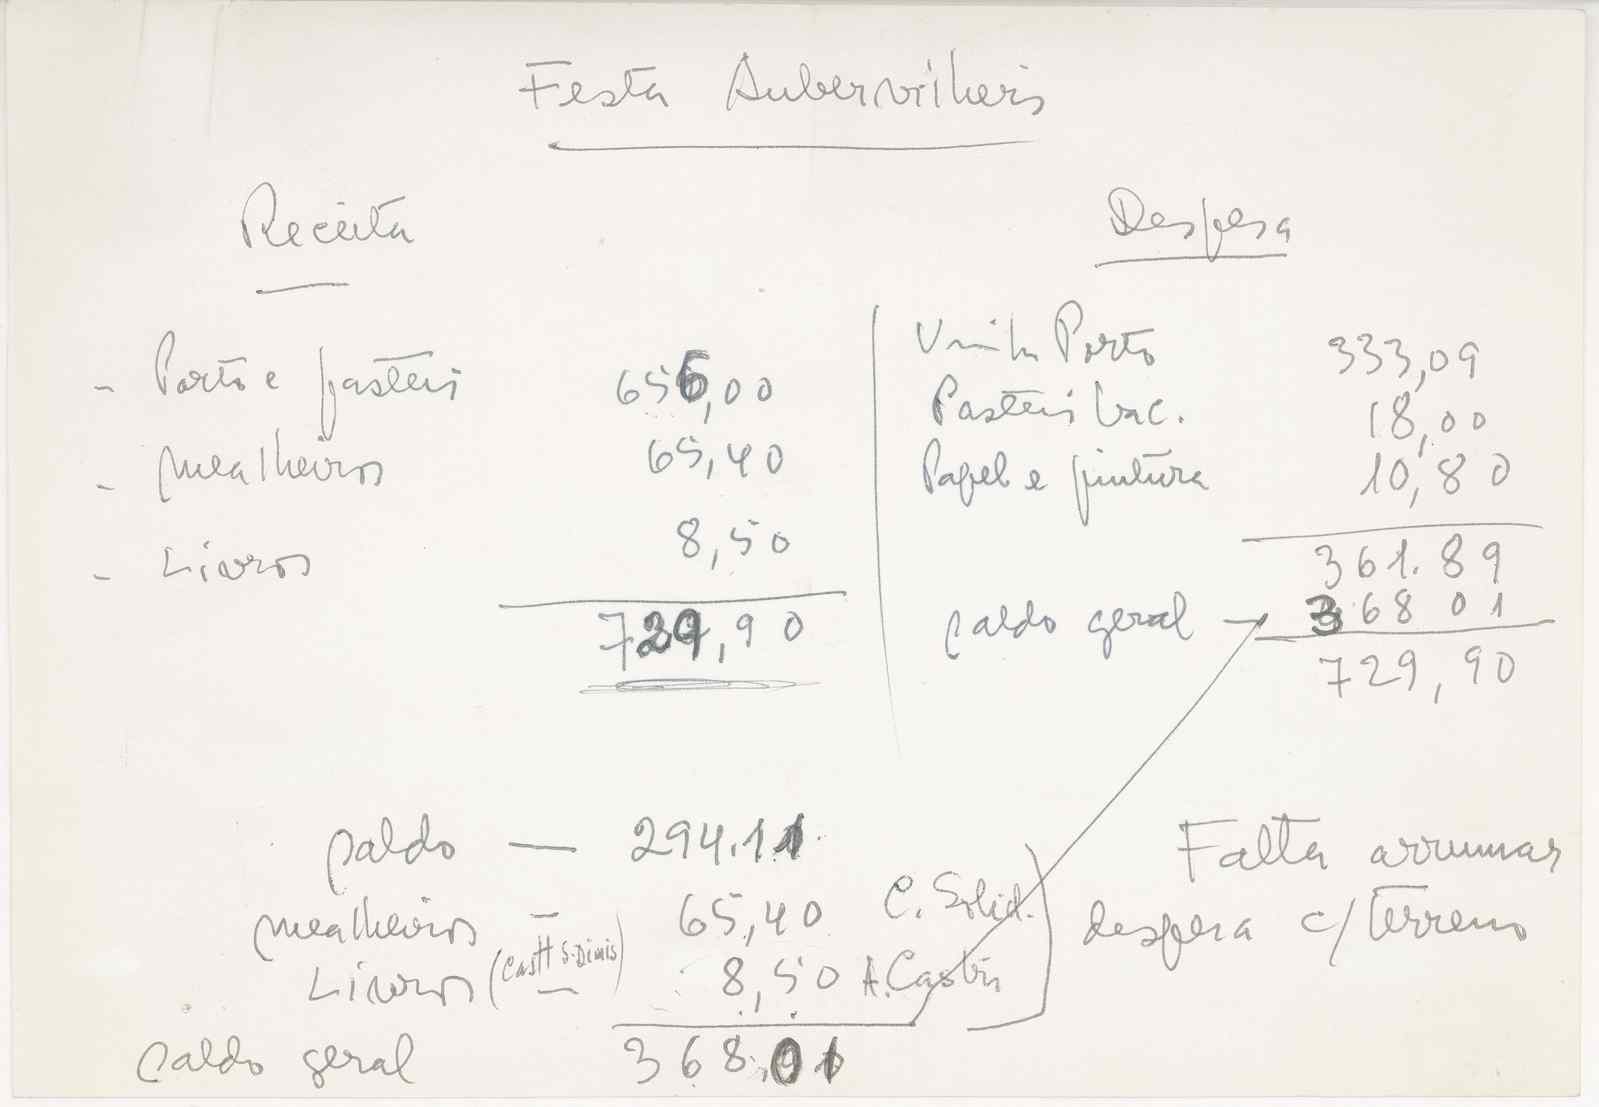 Festa Aubervilheis
Receita
- Porto e pasteis 656,00
- mealheiros 65,40
- Livros 8,50
729,90
Despesa
Vinho Porto 333,09
Pasteis bac. 18,00
Papel e pintura 10,80
361.89
saldo geral → 368 01
729,90
saldo — 294.11
mealheiros — 65,40 C. Solid.
Livros (Castº S. Dinis) — 8,50 A. Castin
saldo geral 368,01
Falta arrumar
despesa c/ terreno